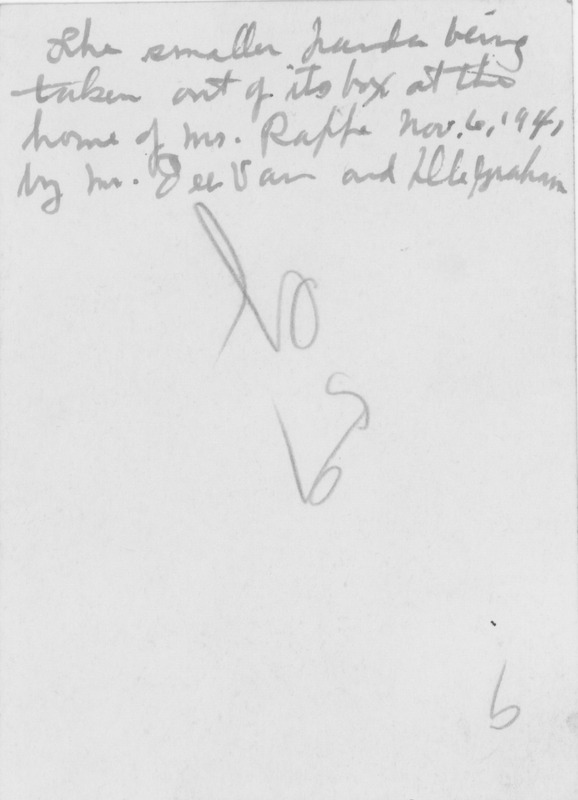 The smaller panda being
taken out of its box at the
home of Mr. Rappe Nov. 6, '941
by Mr. Tee Van and D. Graham
No
6